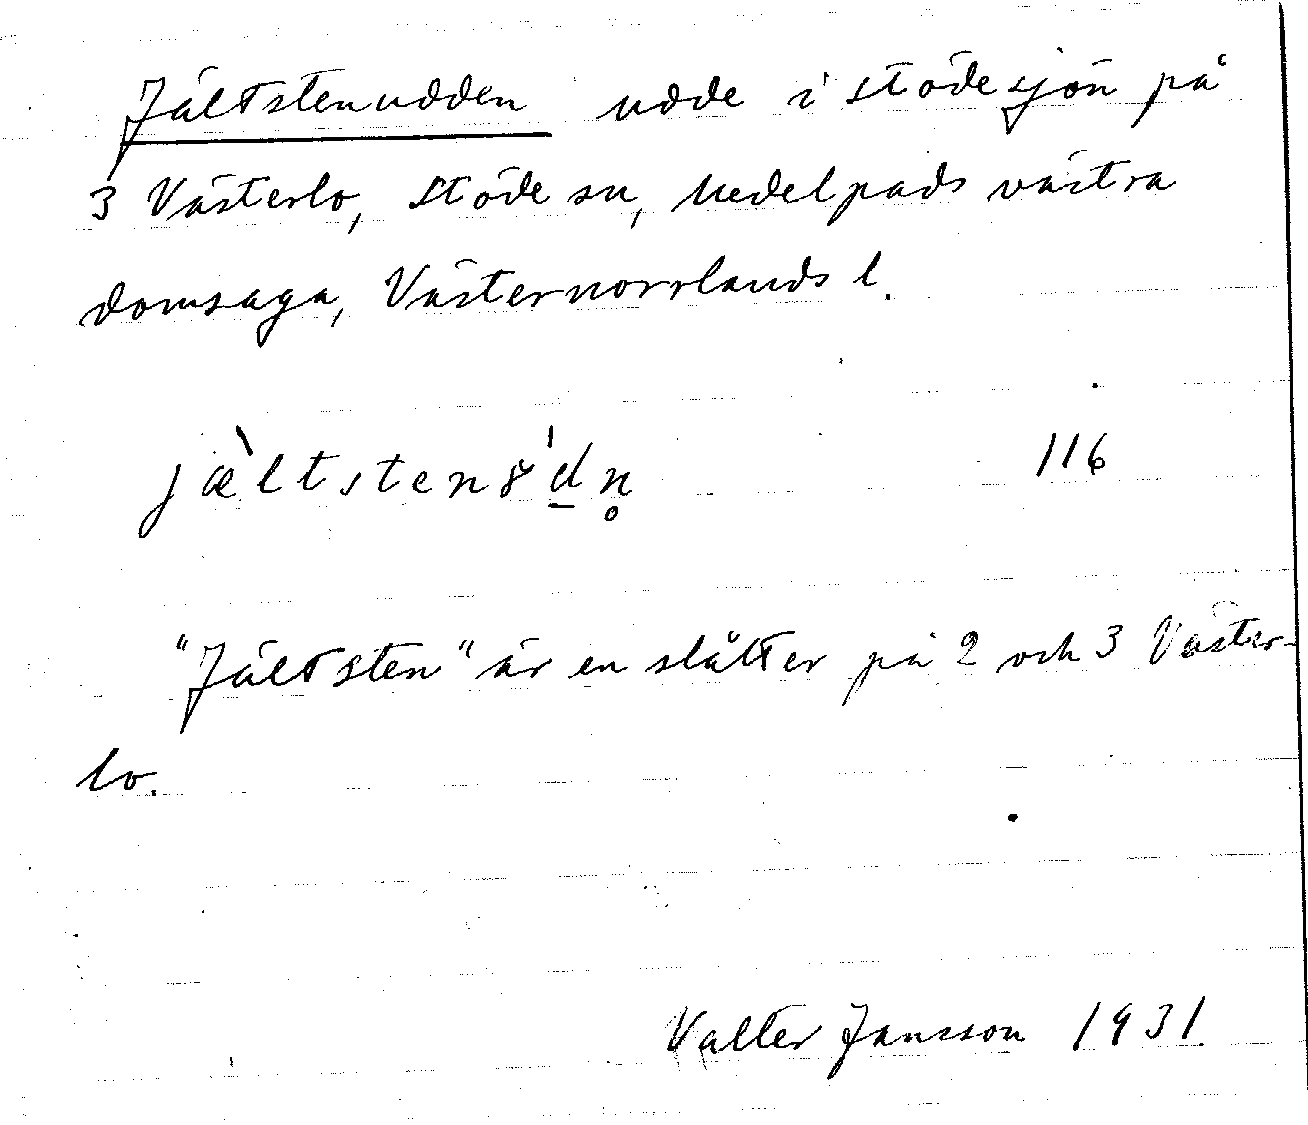 Jältstenudden udde i Stödesjön på
3 Västerlo, Stöde sn, Medelpads västra
domsaga, Västernorrlands l.
jæ̀ltstenȣ'd̲n̥ 116
"Jältsten" är en slåtter på 2 och 3 Väster-
lo.
Valter Jansson 1931